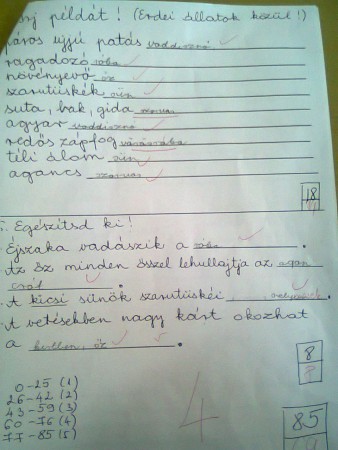 példát! (Erdei állatok közül!)
páros ujjú patás vaddisznó
ragadozó róka
növényevő őz
szarutüskék sün
suta, bak, gida szarvas
agyar vaddisznó
redős zápfog
téli álom sün
agancs szarvas
18
Egészítsd ki!
Éjszaka vadászik a róka.
Az őz minden ősszel lehullajtja az agan
csát.
A kicsi sünök szarutüskéi
A vetésekben nagy kárt okozhat
a őz.
8
8
0-25 (1)
26-42 (2)
43-59 (3)
60-76 (4)
77-85 (5)
4
85